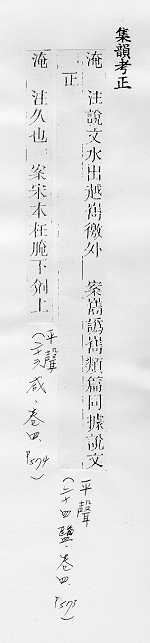 集韻考正
淹　注說文水出越嶲徼外　案嶲譌嶲類篇同據說文
正
平聲
(二十四鹽、卷四、P573)
淹　注久也　案宋本在腌下匌上
平聲
(二十九咸、卷四、P574)